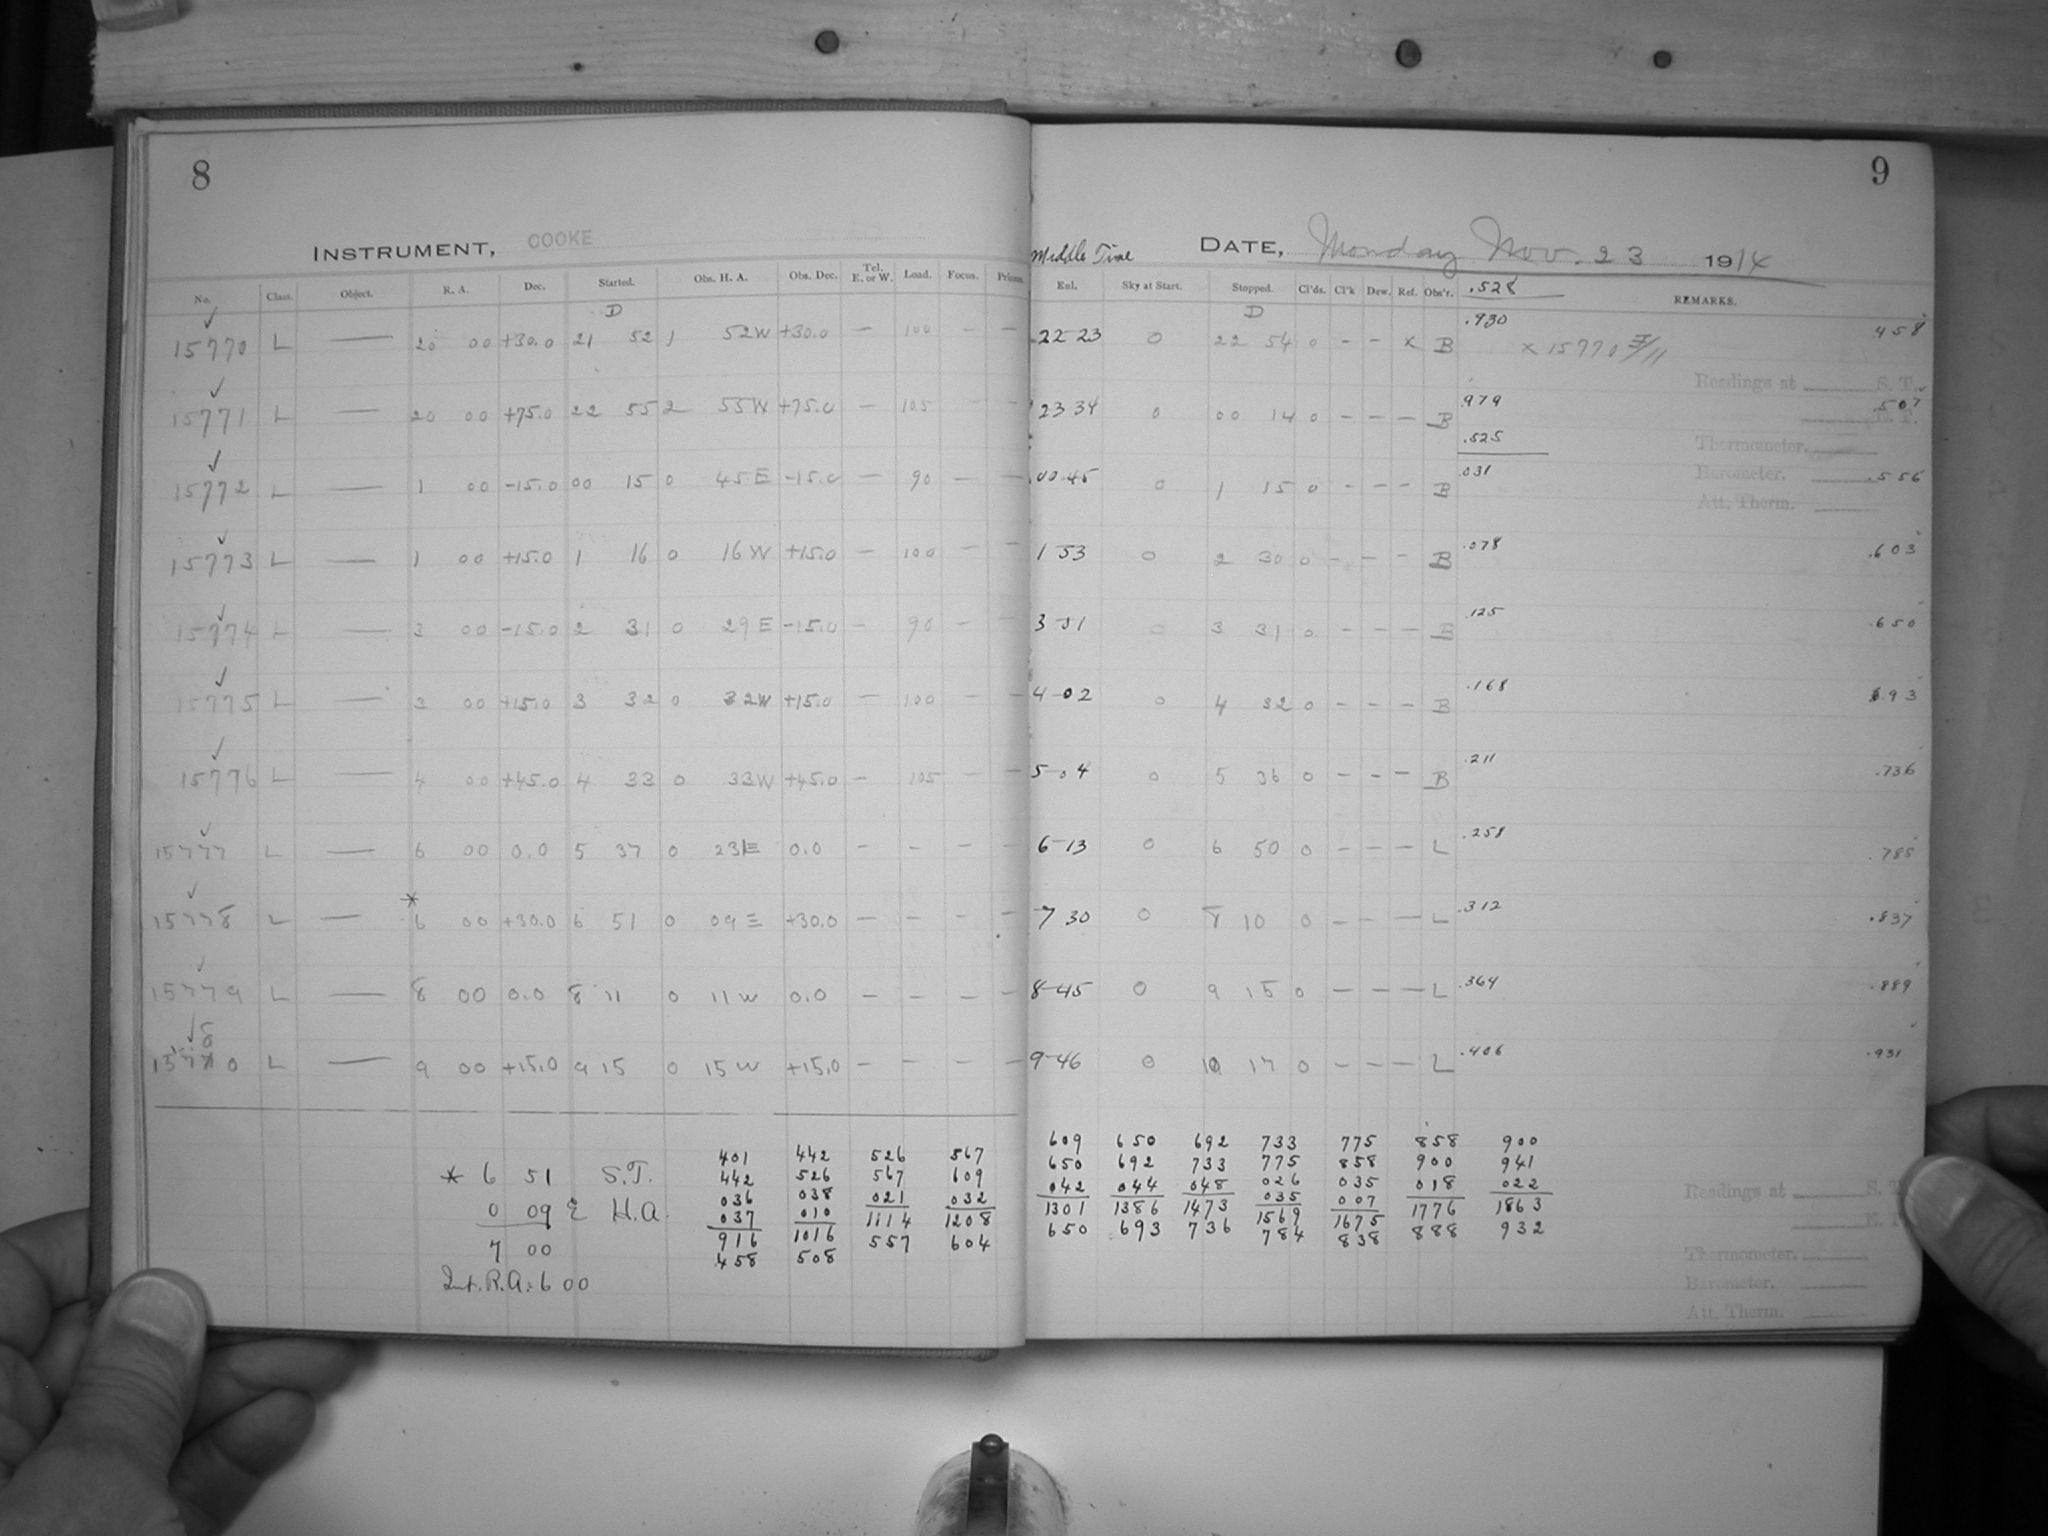 8
INSTRUMENT, COOKE
No. Class. Object. R. A. Dec. Started. Obs. H. A. Obs. Dec. Tel. E. or W. Load. Focus. Prisms.
D
15770 L — 20 00 +30.0 21 52 1 52W +30.0 — 100 — —
15771 L — 20 00 +75.0 22 55 2 55W +75.0 — 105 — —
15772 L — 1 00 -15.0 00 15 0 45E -15.0 — 90 — —
15773 L — 1 00 +15.0 1 16 0 16W +15.0 — 100 — —
15774 L — 3 00 -15.0 2 31 0 29E -15.0 — 90 — —
15775 L — 3 00 +15.0 3 32 0 32W +15.0 — 100 — —
15776 L — 4 00 +45.0 4 33 0 33W +45.0 — 105 — —
15777 L — 6 00 0.0 5 37 0 23E 0.0 — - - —
15778 L — * 6 00 +30.0 6 51 0 09E +30.0 — — — —
15779 L — 8 00 0.0 8 11 0 11W 0.0 — — — —
8
15770 L — 9 00 +15.0 9 15 0 15W +15.0 — - - —
* 6 51 S.T.
0 09 E H.A.
7 00
Int. R.A. = 6 00
401 442 526 567
442 526 567 609
036 038 021 032
037 010 1114 1208
916 1016 557 604
458 508
9
Middle Time DATE, Monday Nov. 23 1914
Eul. Sky at Start. Stopped. Cl'ds. Cl'k Dew. Ref. Obs'r. .528 REMARKS.
D
22 23 0 22 54 0 - - x B .930 x 15770 F/11 458
Readings at S. T.
23 34 0 00 14 0 - - - B .979 .507
E. T.
.525
Thermometer.
00 45 0 1 15 0 - - - B .031 Barometer. .556
Att. Therm.
1 53 0 2 30 0 - - - B .078 .603
3 01 0 3 31 0 - - - B .125 .650
4-02 0 4 32 0 - - - B .168 .693
5 04 0 5 36 0 - - - B .211 .736
6-13 0 6 50 0 - - - L .258 .785
7 30 0 8 10 0 - - - L .312 .837
8-45 0 9 15 0 - - - L .364 .889
9-46 0 10 17 0 - - - L .406 .931
609 650 692 733 775 858 900
650 692 733 775 858 900 941
042 044 048 026 035 018 022
1301 1386 1473 035 007 1776 1863
650 693 736 1569 1675 888 932
784 838
Readings at S. T.
E. T.
Thermometer.
Barometer.
Att. Therm.